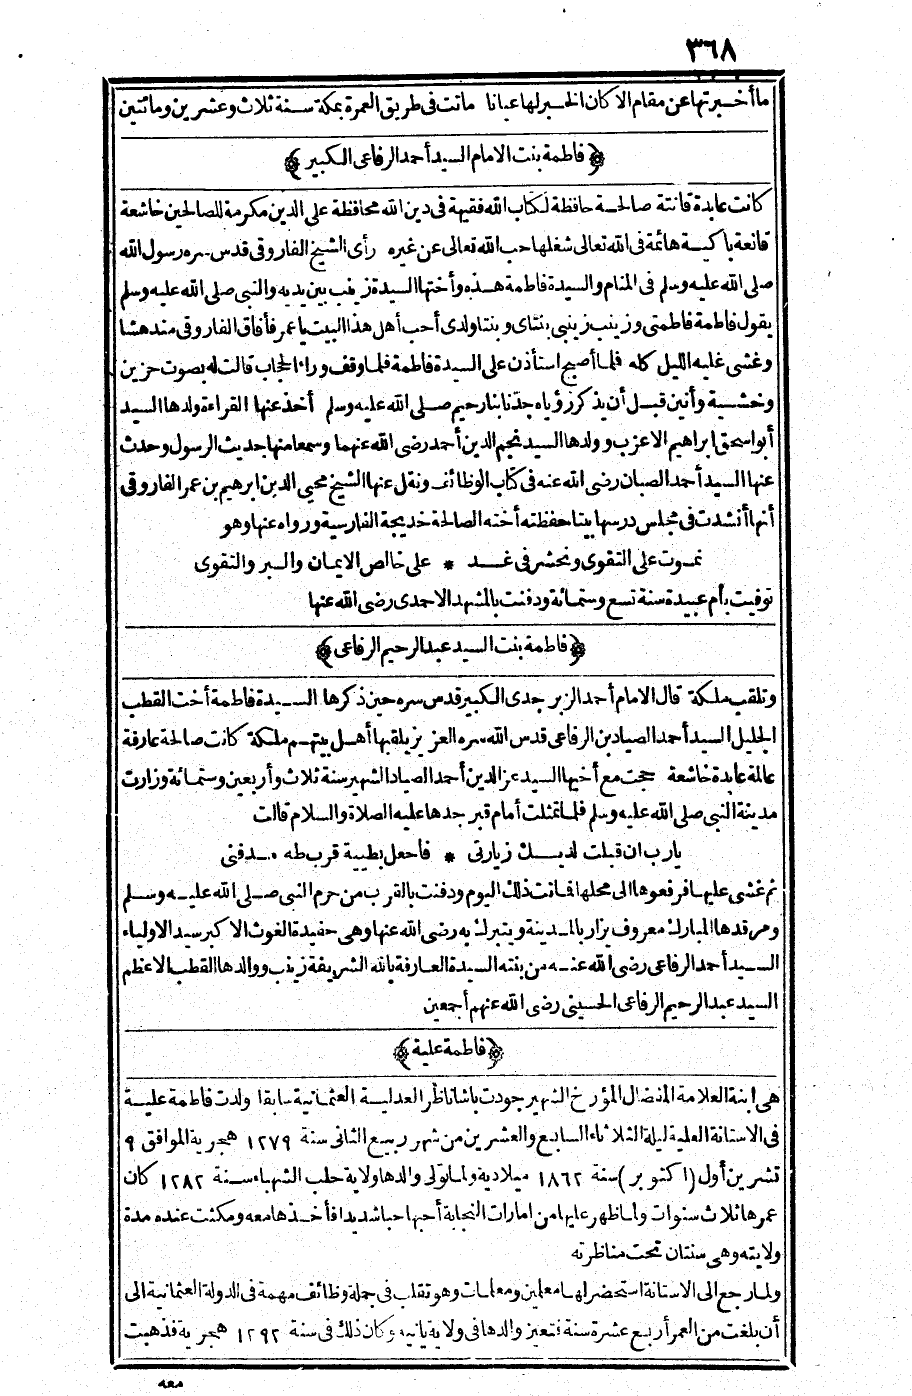 ٣٦٨
ما أخبرتها عن مقام الا كان الخبر لها عيانا ماتت فى طريق العمرة بمكة سنة ثلاث وعشرين ومائتين
﴿فاطمة بنت الامام السيد أحمد الرفاعى الكبير﴾
كانت عابدة قانتة صالحة حافظة لكتاب الله فقيهة فى دين الله محافظة على الدين مكرمة للصالحين خاشعة
قانعة باكية هائمة فى الله تعالى شغلها حب الله تعالى عن غيره رأى الشيخ الفاروقى قدس سره رسول الله
صلى الله عليه وسلم فى المنام والسيدة فاطمة هذه وأختها السيدة زينب بين يديه والنبى صلى الله عليه وسلم
يقول فاطمة فاطمتى وزينب زينبى بنتاى وبنتا ولدى أحب أهل هذا البيت يا عمر فأفاق الفاروقى مندهشا
وغشى عليه الليل كله فلما أصبح استأذن على السيدة فاطمة فلما وقف وراء الحجاب قالت له بصوت حزين
وخشية وأنين قبل أن يذكر رؤياه جدنا بنا رحيم صلى الله عليه وسلم أخذ عنها القراءة ولدها السيد
أبو اسحق ابراهيم الاعزب وولدها السيد نجم الدين أحمد رضى الله عنهما وسمعا منها حديث الرسول وحدث
عنها السيد أحمد الصبان رضى الله عنه فى كتاب الوظائف ونقل عنها الشيخ محيى الدين ابرهيم بن عمر الفاروقى
أنها أنشدت فى مجلس درسها بيتا حفظته أخته الصالحة خديجة الفارسية ورواه عنها وهو
نموت على التقوى ونحشر فى غد * على خالص الايمان والبر والتقوى
توفيت بأم عبيدة سنة تسع وستمائة ودفنت بالمشهد الاحمدى رضى الله عنها
﴿فاطمة بنت السيد عبد الرحيم الرفاعى﴾
وتلقب ملكة قال الامام أحمد الزبرجدى الكبير قدس سره حين ذكرها السيدة فاطمة أخت القطب
الجليل السيد أحمد الصياد بن الرفاعى قدس الله سره العزيز يلقبها أهل بيتهم ملكة كانت صالحة عارفة
عالمة عابدة خاشعة حجت مع أخيها السيد عز الدين أحمد الصياد الشهير سنة ثلاث وأربعين وستمائة وزارت
مدينة النبى صلى الله عليه وسلم فلما تمثلت أمام قبر جدها عليه الصلاة والسلام قالت
يا رب ان قبلت لديك زيارتى * فاجعل بطيبة قرب طه مدفنى
ثم غشى عليها فرفعوها الى محلها فماتت ذلك اليوم ودفنت بالقرب من حرم النبى صلى الله عليه وسلم
ومرقدها المبارك معروف يزار بالمدينة ويتبرك به رضى الله عنها وهى حفيدة الغوث الاكبر سيد الاولياء
السيد أحمد الرفاعى رضى الله عنه من بنته السيدة العارفة بالله الشريفة زينب ووالدها القطب الاعظم
السيد عبد الرحيم الرفاعى الحسينى رضى الله عنهم أجمعين
﴿فاطمة علية﴾
هى ابنة العلامة المفضال المؤرخ الشهير جودت باشا ناظر العدلية العثمانية سابقا ولدت فاطمة علية
فى الاستانة العلية ليلة الثلاثاء السابع والعشرين من شهر ربيع الثانى سنة ١٢٧٩ هجرية الموافق ٩
تشرين أول (اكتوبر) سنة ١٨٦٢ ميلادية ولما تولى والدها ولاية حلب الشهباء سنة ١٢٨٢ كان
عمرها ثلاث سنوات ولما ظهر عليها من امارات النجابة أحبها حبا شديدا فأخذها معه ومكثت عنده مدة
ولايته وهى سنتان تحت مناظرته
ولما رجع الى الاستانة استحضر لها معلمين ومعلمات وهو تقلب فى جملة وظائف مهمة فى الدولة العثمانية الى
أن بلغت من العمر أربع عشرة سنة فتعين والدها فى ولاية يانيه وكان ذلك فى سنة ١٢٩٢ هجرية فذهبت
معه